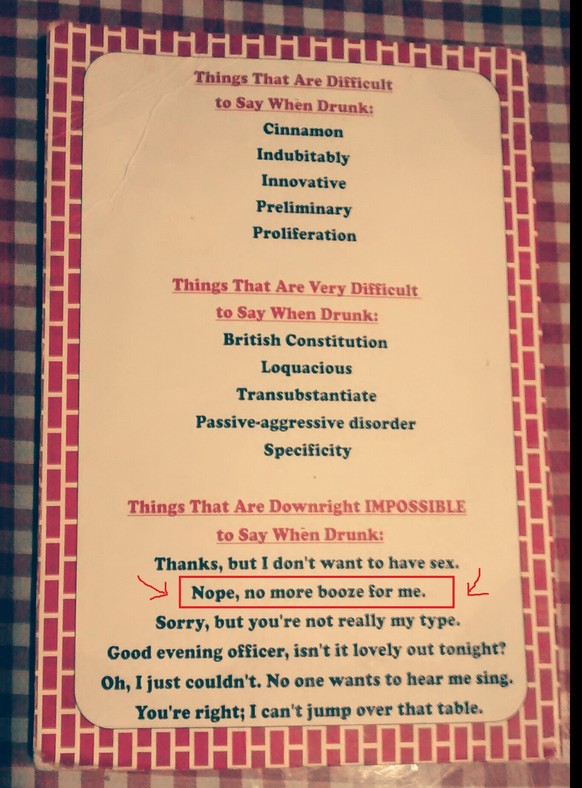 Things That Are Difficult
to Say When Drunk:
Cinnamon
Indubitably
Innovative
Preliminary
Proliferation
Things That Are Very Difficult
to Say When Drunk:
British Constitution
Loquacious
Transubstantiate
Passive-aggressive disorder
Specificity
Things That Are Downright IMPOSSIBLE
to Say When Drunk:
Thanks, but I don't want to have sex.
Nope, no more booze for me.
Sorry, but you're not really my type.
Good evening officer, isn't it lovely out tonight?
Oh, I just couldn't. No one wants to hear me sing.
You're right; I can't jump over that table.